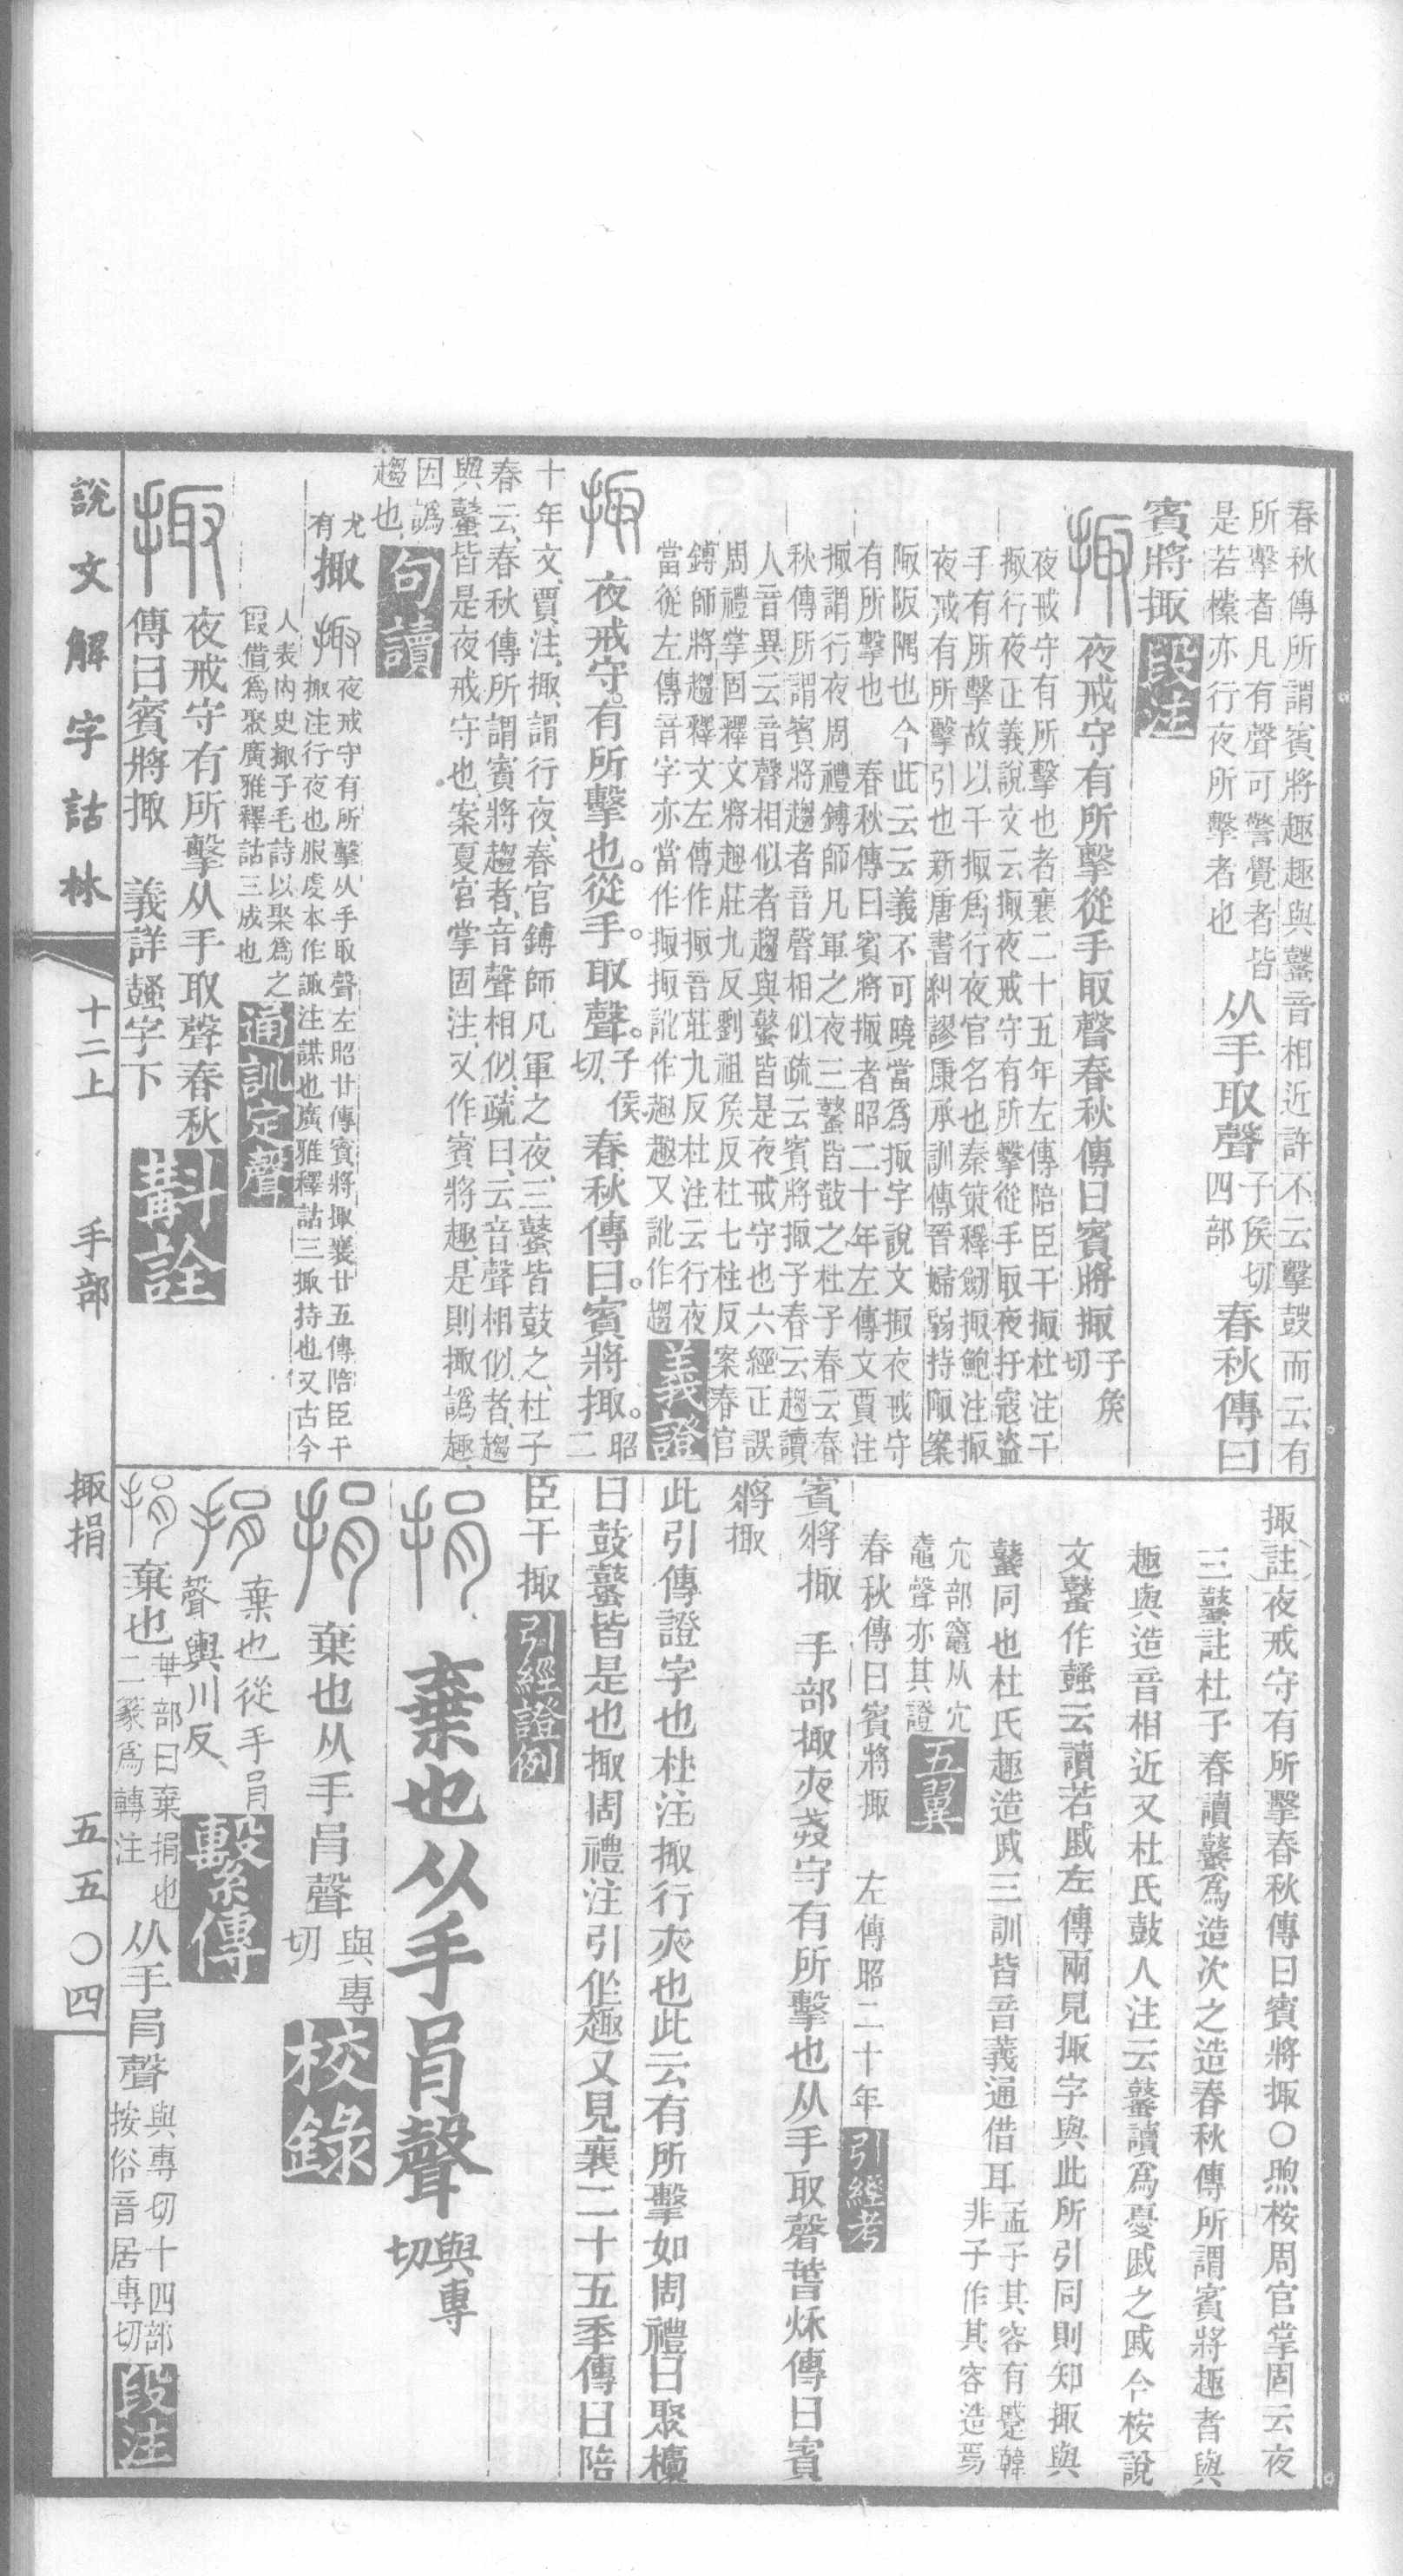 春秋傳所謂賓將趣趣與鼜音相近許不云擊鼓而云有
所擊者凡有聲可警覺者皆
是若㯓亦行夜所擊者也
从手取聲
子侯切
四部
春秋傳曰
賓將掫
段注
掫
夜戒守有所擊從手取聲春秋傳曰賓將掫
子矦
切
夜戒守有所擊也者襄二十五年左傳陪臣干掫杜注干
掫行夜正義說文云掫夜戒守有所擊從手取夜扞寇盜
手有所擊故以干掫爲行夜官名也秦策釋劒掫鮑注掫
夜戒有所擊引也新唐書糾謬康承訓傳晉婦弱持陬案
陬阪隅也今此云云義不可曉當爲掫字說文掫夜戒守
有所擊也 春秋傳曰賓將掫者昭二十年左傳文賈注
掫謂行夜周禮鎛師凡軍之夜三鼜皆鼓之杜子春云春
秋傳所謂賓將趨者音聲相似疏云賓將掫子春云趨讀
人音異云音聲相似者趨與鼜皆是夜戒守也六經正誤
周禮掌固釋文將趣莊九反劉祖矦反杜七柱反案春官
鎛師將趨釋文左傳作掫音莊九反杜注云行夜
當從左傳音字亦當作掫掫訛作趣趣又訛作趨
義證
掫
夜戒守。有所擊也。從手。取聲。
子侯
切
春秋傳曰。賓將掫。
昭
二
十年文、賈注、掫、謂行夜、春官鎛師、凡軍之夜、三鼜皆鼓之、杜子
春云、春秋傳所謂賓將趨者、音聲相似、疏曰、云音聲相似者、趨
與鼜皆是夜戒守也、案夏官掌固注、又作賓將趣、是則掫譌趣、
因譌
趨也、
句讀
尤
有
掫
掫
夜戒守有所擊从手取聲左昭廿傳賓將掫襄廿五傳陪臣干
掫注行夜也服虔本作諏注謀也廣雅釋詁三掫持也又古今
人表內史掫子毛詩以聚爲之
叚借爲聚廣雅釋詁三成也
通訓定聲
掫
夜戒守有所擊从手取聲春秋
傳曰賓將掫 義詳鼜字下
斠詮
說文解字詁林
十二上
手部
掫捐
五五〇四
掫註夜戒守有所擊春秋傳曰賓將掫○煦桉周官掌固云夜
三鼜註杜子春讀鼜爲造次之造春秋傳所謂賓將趣者與
趣與造音相近又杜氏鼓人注云鼜讀爲憂戚之戚今桉說
文鼜作鼜云讀若戚左傳兩見掫字與此所引同則知掫與
鼜同也杜氏趣造戚三訓皆音義通借耳
孟子其容有蹙韓
非子作其容造焉
穴部竈从穴
鼀聲亦其證
五翼
春秋傳曰賓將掫 左傳昭二十年
引經考
賓將掫 手部掫夾戒守有所擊也从手取聲萅秌傳曰賓
將掫
此引傳證字也杜注掫行夾也此云有所擊如周禮曰聚㯓
曰鼓鼜皆是也掫周禮注引作趣又見襄二十五季傳曰陪
臣干掫
引經證例
捐
棄也从手肙聲
與專
切
捐
棄也从手肙聲
與專
切
校錄
捐
棄也從手肙
聲與川反、
繫傳
捐
棄也
𠦒部曰棄捐也
二篆爲轉注
从手肙聲
與專切十四部
按俗音居專切
段注